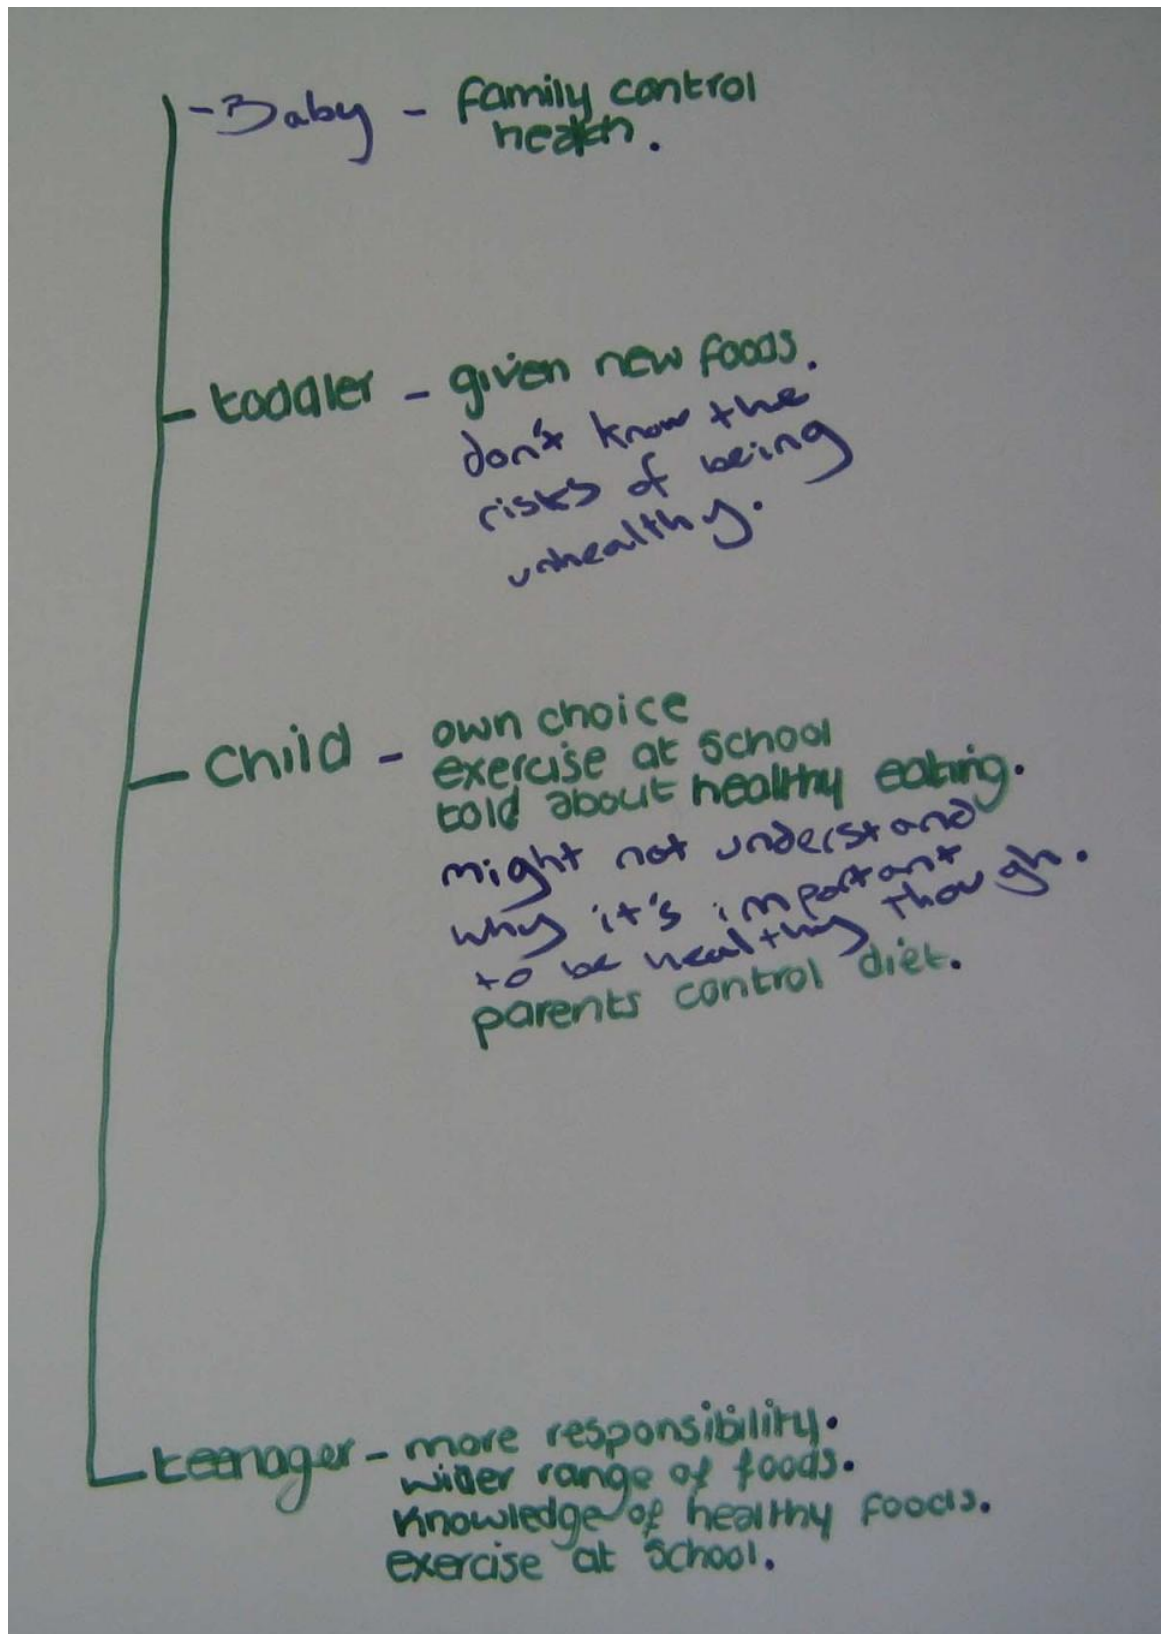 - Baby - family control
health.
- toddler - given new foods.
don't know the
risks of being
unhealthy.
- Child - own choice
exercise at school
told about healthy eating.
might not understand
why it's important
to be healthy though.
parents control diet.
- teenager - more responsibility.
wider range of foods.
knowledge of healthy foods.
exercise at school.